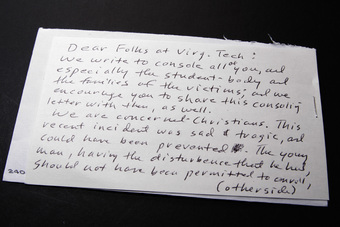 Dear Folks at Virg. Tech:
We write to console all of you, and
especially the student-body, and
the families of the victims; and we
encourage you to share this consoling
letter with them, as well.
We are concerned Christians. This
recent incident was sad & tragic, and
could have been prevented. The young
man, having the disturbence that he had,
should not have been permitted to enroll,
(otherside)
240